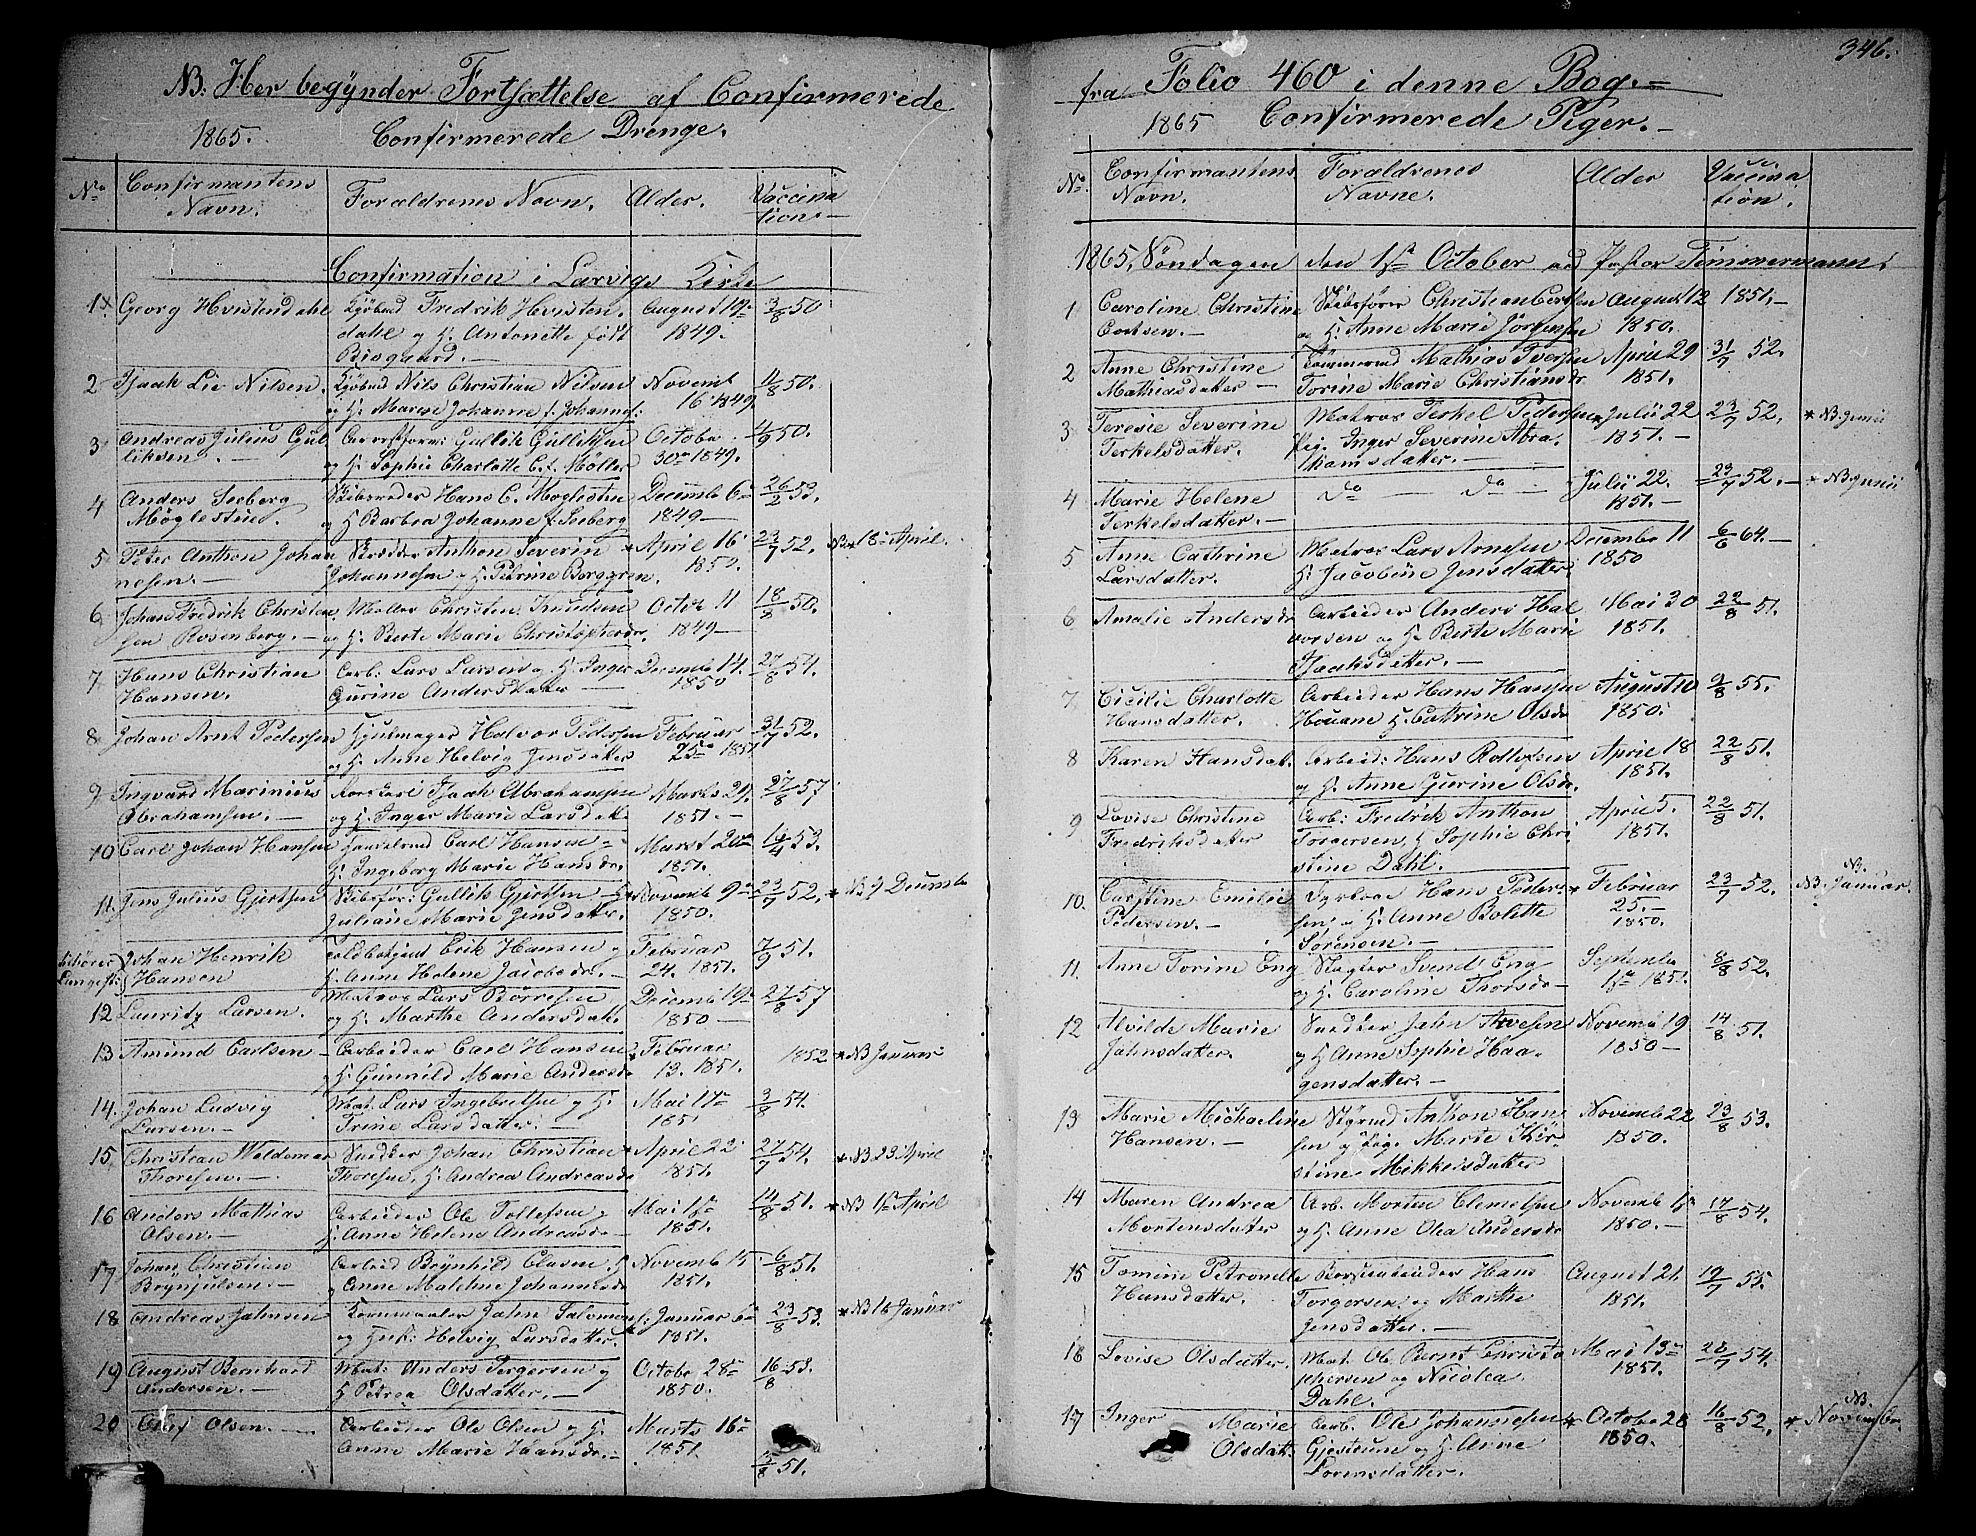 NB: Her begÿnder Fortsættelse af Confirmerede
1865. Confirmerede Drenge.
No Confirmantens Navn. Forældrenes Navn. Alder. Vaccination
Confirmation i Larvigs Kirke
1 Georg Hvistendahl Fredrik Hvisten- August 19de 3/8 50
dahl og H. Antonette født 1849.
Bisgaard. —
2 Isaak Lie Nilsen. Nils Christian Nilsen Novemb 11/8 50.
og H. Johanne f. Johannes: 16. 1849.
3 Andreas Julius Gul Gullik Gulliksen Octobe 4/9 50.
liksen. — og H. Sophie Charlotte C. f. Møller 30te 1849.
4 Anders Seeberg Hans C. Møglestue Decemb 6te 26/2 53.
Møglestue. og H. Barbra Johanne f. Seeberg 1849 —
5 Peter Anthon Johan Snedker Anthon Severin * April 16 23/7 52. 18de April.
nesen. — Johannesen og H. Petrine Borggren. 1850.
6 Johan Fredrik Christen Christen Knudsen Octobr 11 18/8 50.
sen Rosenberg. — og H. Berte Marie Christophersdr. 1849 —
7 Hans Christian Arb: Lars Larsen og H. Inger Decemb 14. 27/8 54.
Hansen. Gurine Andersdatter — 1850
8 Johan Arnt Pedersen Hjulmager Halvor Pedersen Februar 31/7 52.
og H. Anne Helvig Jensdatter 25de 1851
9 Ingvard Marinius Isaach Abrahamsen Marts 29. 27/8 57
Abrahamsen. — og H. Inger Marie Larsdat. 1851. —
10 Carl Johan Hansen Carl Hansen — Marst 20de 16/4 53.
H. Ingeborg Marie Hansdr. 1851.
11 Jens Julius Gjertsen Skibsfør: Gullik Gjertsen — H * Novemb 9de 23/7 52. * NB 9 Decembe
Juliane Marie Jensdatter. 1850.
Johan Henrik Erik Hansen og Februar 7/9 51.
Hansen H. Anne Helene Jacobsdr. — 24. 1851.
12 Lauritz Larsen. Matros Lars Børresen Decemb 19de 27/8 57
og H. Marthe Andersdat. 1850 —
13 Amund Carlsen — Arbeider Carl Hansen * Februar 1852 * NB Januar
og H. Gunnild Marie Andersd 13. 1851.
14. Johan Ludvig Mat. Lars Ingebretsen og H. Mai 17de 3/8 54.
Larsen. — Trine Larsdatter. — 1851
15 Christian Waldemar Snedker Johan Christian * April 22 27/7 54. * NB 23 April
Thoresen. — Thoresen, H. Andrea Andreasd 1851.
16 Anders Mathias Arbeider Ole Tollefsen og Mai 1ste 14/8 51. * NB 1ste April
Olsen. — H. Anne Helene Andreasd — 1851.
17 Johan Christian Arbeid Brÿnhild Olasen. H Novemb 15 6/8 51.
Brÿnjulsens — og Anne Malehne Johannesd 1851.
18 Andreas Jahnsen Kornmaaler Jahn Salomon Januar 6te 23/8 53. * NB 16 Januar
og Helvig Larsdatter. 1851.
19 August Bernhard Mat: Anders Jørgersen og Octobe 28de 16/8 53.
Andersen. — H Petrea Olsdatter. — 1850.
20 Oluf Olsen. — Arbeider Ole Olsen og H. Marts 16de
Anne Marie Hansdr. — 1851. 5/8 51.
346.
fra Folio 460 i denne Bog. —
1865 Confirmerede Piger. —
No. Confirmantens Navn. Forældrenes Navne. Alder Vaccination.
1865, Søndagen den 1ste October ved Pastor Timmermann.
1 Caroline Christine Skibsfører Christian August 12 1851. —
og H. Anne Marie Jørgensen 1850.
2 Anne Christine Tømmermd Mathias Iversen April 29 31/7 52.
Mathiasdatter — Torine Marie Christiansdr. 1851.
3 Teresie Severine Matros Terkel Pedersen * Julii 22 23/7 52. * NB: Junii
Terkelsdatter. Inger Severine Abra 1851. —
hamsdatter. —
4 Marie Helene Do — Do — Julii 22. 23/7 52. — * NB: Junii
Terkelsdatter. — 1851. —
5 Anne Cathrine Matros Lars Arnesen Decembe 11 6/6 64. —
Larsdatter. H. Jacobine Jensdatter. 1850
6 Amalie Andersdr Arbeider Anders Hal Mai 30 22/8 51.
vorsen og H. Berte Marie 1851.
Isaaksdatter. —
7 Cicilie Charlotte Arbeider Hans Hansen August 10 9/8 55.
Hansdatter. Houane H. Cathrine Olsdr 1850.
8 Karen Hansdat. Arbeid: Hans Rollefsen April 18 22/8 51.
og H. Anne Gurine Olsdr. 1851.
9 Lovise Christine Arb: Fredrik Anthon April 5. 22/8 51.
Fredriksdatter Torgersen, H Sophie Chri 1851.
stine Dahl.
10. Carstine Emilie Hans Peder * Februar 23/7 52. NB. Januar.
Pedersen. — sen, og H. Anne Bolette 25. —
Sørensen. — 1850.
11. Anne Torine Eng Slagter Svend Eng Septembe 8/8 52.
og H. Caroline Thorsdr — 1ste 1851.
12 Alvilde Marie Snedker Jahn Arvesen Novemb 19 14/8 51.
Jahnsdatter. og H Anne Sophie Haa- 1850 —
gensdatter. —
13 Marie Michaeline Stÿrmd Anthon Han Novemb 22 23/8 53.
Hansen. — sen og Marte Kir 1850.
stine Mikkelsdatter
14 Maren Andrea Arb. Morten Clemetsen Novemb 1ste 17/8 54.
Mortensdatter og H. Anne Olea Andersdr 1850. —
15 Tomine Petronelle Hans August 21. 19/7 55.
Hansdatter. Torgersen, og Marthe 1851.
Jensdatter. —
16 Lovise Olsdatter. Mat. Ole Bernt Christo Mai 13de 20/7 54.
phersen og Nicolea 1851.
Dahl. —
17 Inger Marie Arb. Ole Johannesen * Octobe 28 16/8 52. * NB. Novembr.
Olsdat. Gjestrune og H. Anne 1850.
Lorensdatter.